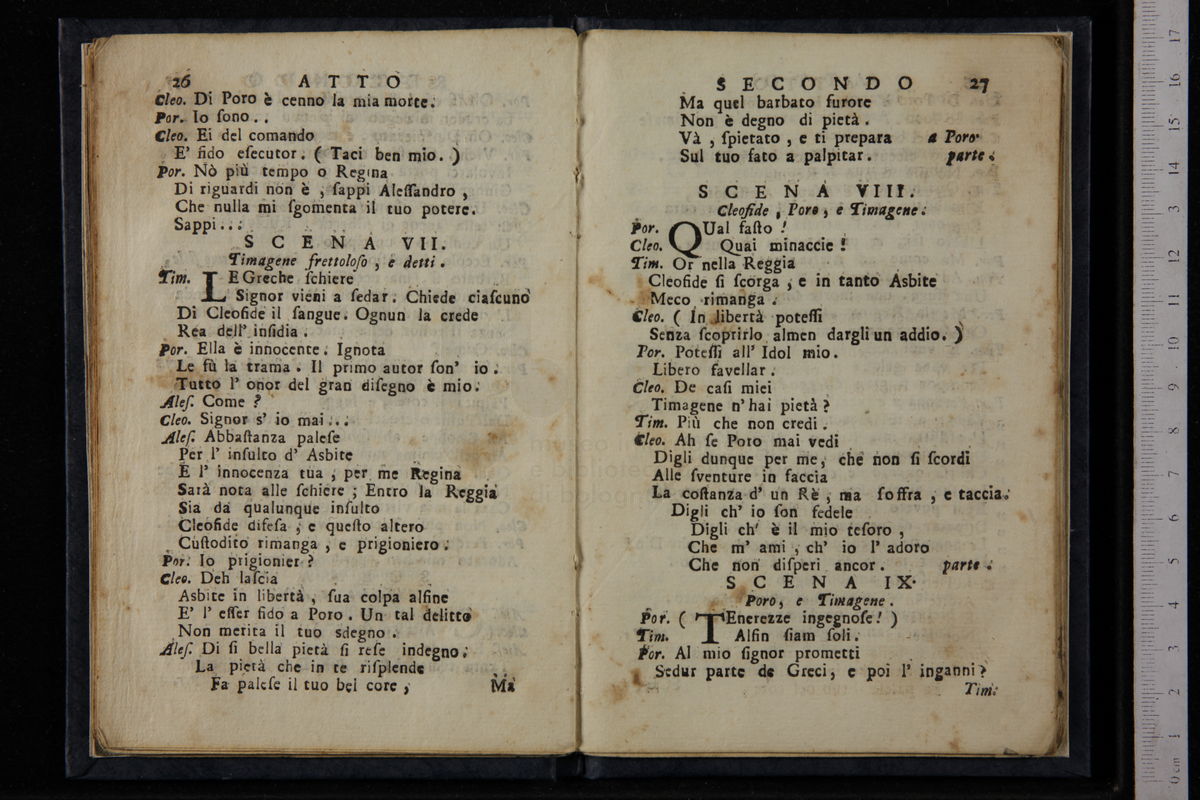 26 ATTO
Cleo. Di Poro è cenno la mia morte.
Por. Io sono . .
Cleo. Ei del comando
E' fido eſecutor. ( Taci ben mio. )
Por. Nò più tempo o Regina
Di riguardi non è , ſappi Aleſſandro ,
Che nulla mi ſgomenta il tuo potere.
Sappi . . .
SCENA VII.
Timagene frettoloſo , e detti .
Tim. LE Greche ſchiere
Signor vieni a ſedar. Chiede ciaſcuno
Di Cleofide il ſangue. Ognun la crede
Rea dell' inſidia .
Por. Ella è innocente. Ignota
Le fù la trama . Il primo autor ſon' io .
Tutto l' onor del gran diſegno è mio.
Aleſ. Come ?
Cleo. Signor s' io mai . . .
Aleſ. Abbaſtanza paleſe
Per l' inſulto d' Asbite
E l' innocenza tua , per me Regina
Sarà nota alle ſchiere ; Entro la Reggia
Sia da qualunque inſulto
Cleofide difeſa , e queſto altero
Cuſtodito rimanga , e prigioniero .
Por. Io prigionier ?
Cleo. Deh laſcia
Asbite in libertà , ſua colpa alfine
E' l' eſſer fido a Poro . Un tal delitto
Non merita il tuo sdegno .
Aleſ. Di ſi bella pietà ſi reſe indegno.
La pietà che in te riſplende
Fa paleſe il tuo bel core ,
Ma
SECONDO 27
Ma quel barbato furore
Non è degno di pietà .
Và , ſpietato , e ti prepara a Poro
Sul tuo fato a palpitar . parte .
SCENA VIII.
Cleofide , Poro , e Timagene .
Por. QUal faſto !
Cleo. Quai minaccie !
Tim. Or nella Reggia
Cleofide ſi ſcorga , e in tanto Asbite
Meco rimanga .
Cleo. ( In libertà poteſſi
Senza ſcoprirlo almen dargli un addio. )
Por. Poteſſi all' Idol mio.
Libero favellar .
Cleo. De caſi miei
Timagene n' hai pietà ?
Tim. Più che non credi .
Cleo. Ah ſe Poro mai vedi
Digli dunque per me, che non ſi ſcordi
Alle ſventure in faccia
La coſtanza d' un Rè , ma ſoffra , e taccia.
Digli ch' io ſon fedele
Digli ch' è il mio teſoro ,
Che m' ami , ch' io l' adoro
Che non diſperi ancor . parte .
SCENA IX.
Poro, e Timagene .
Por. ( TEnerezze ingegnoſe ! )
Tim. Alfin ſiam ſoli .
Por. Al mio ſignor prometti
Sedur parte de Greci, e poi l' inganni ?
Tim.